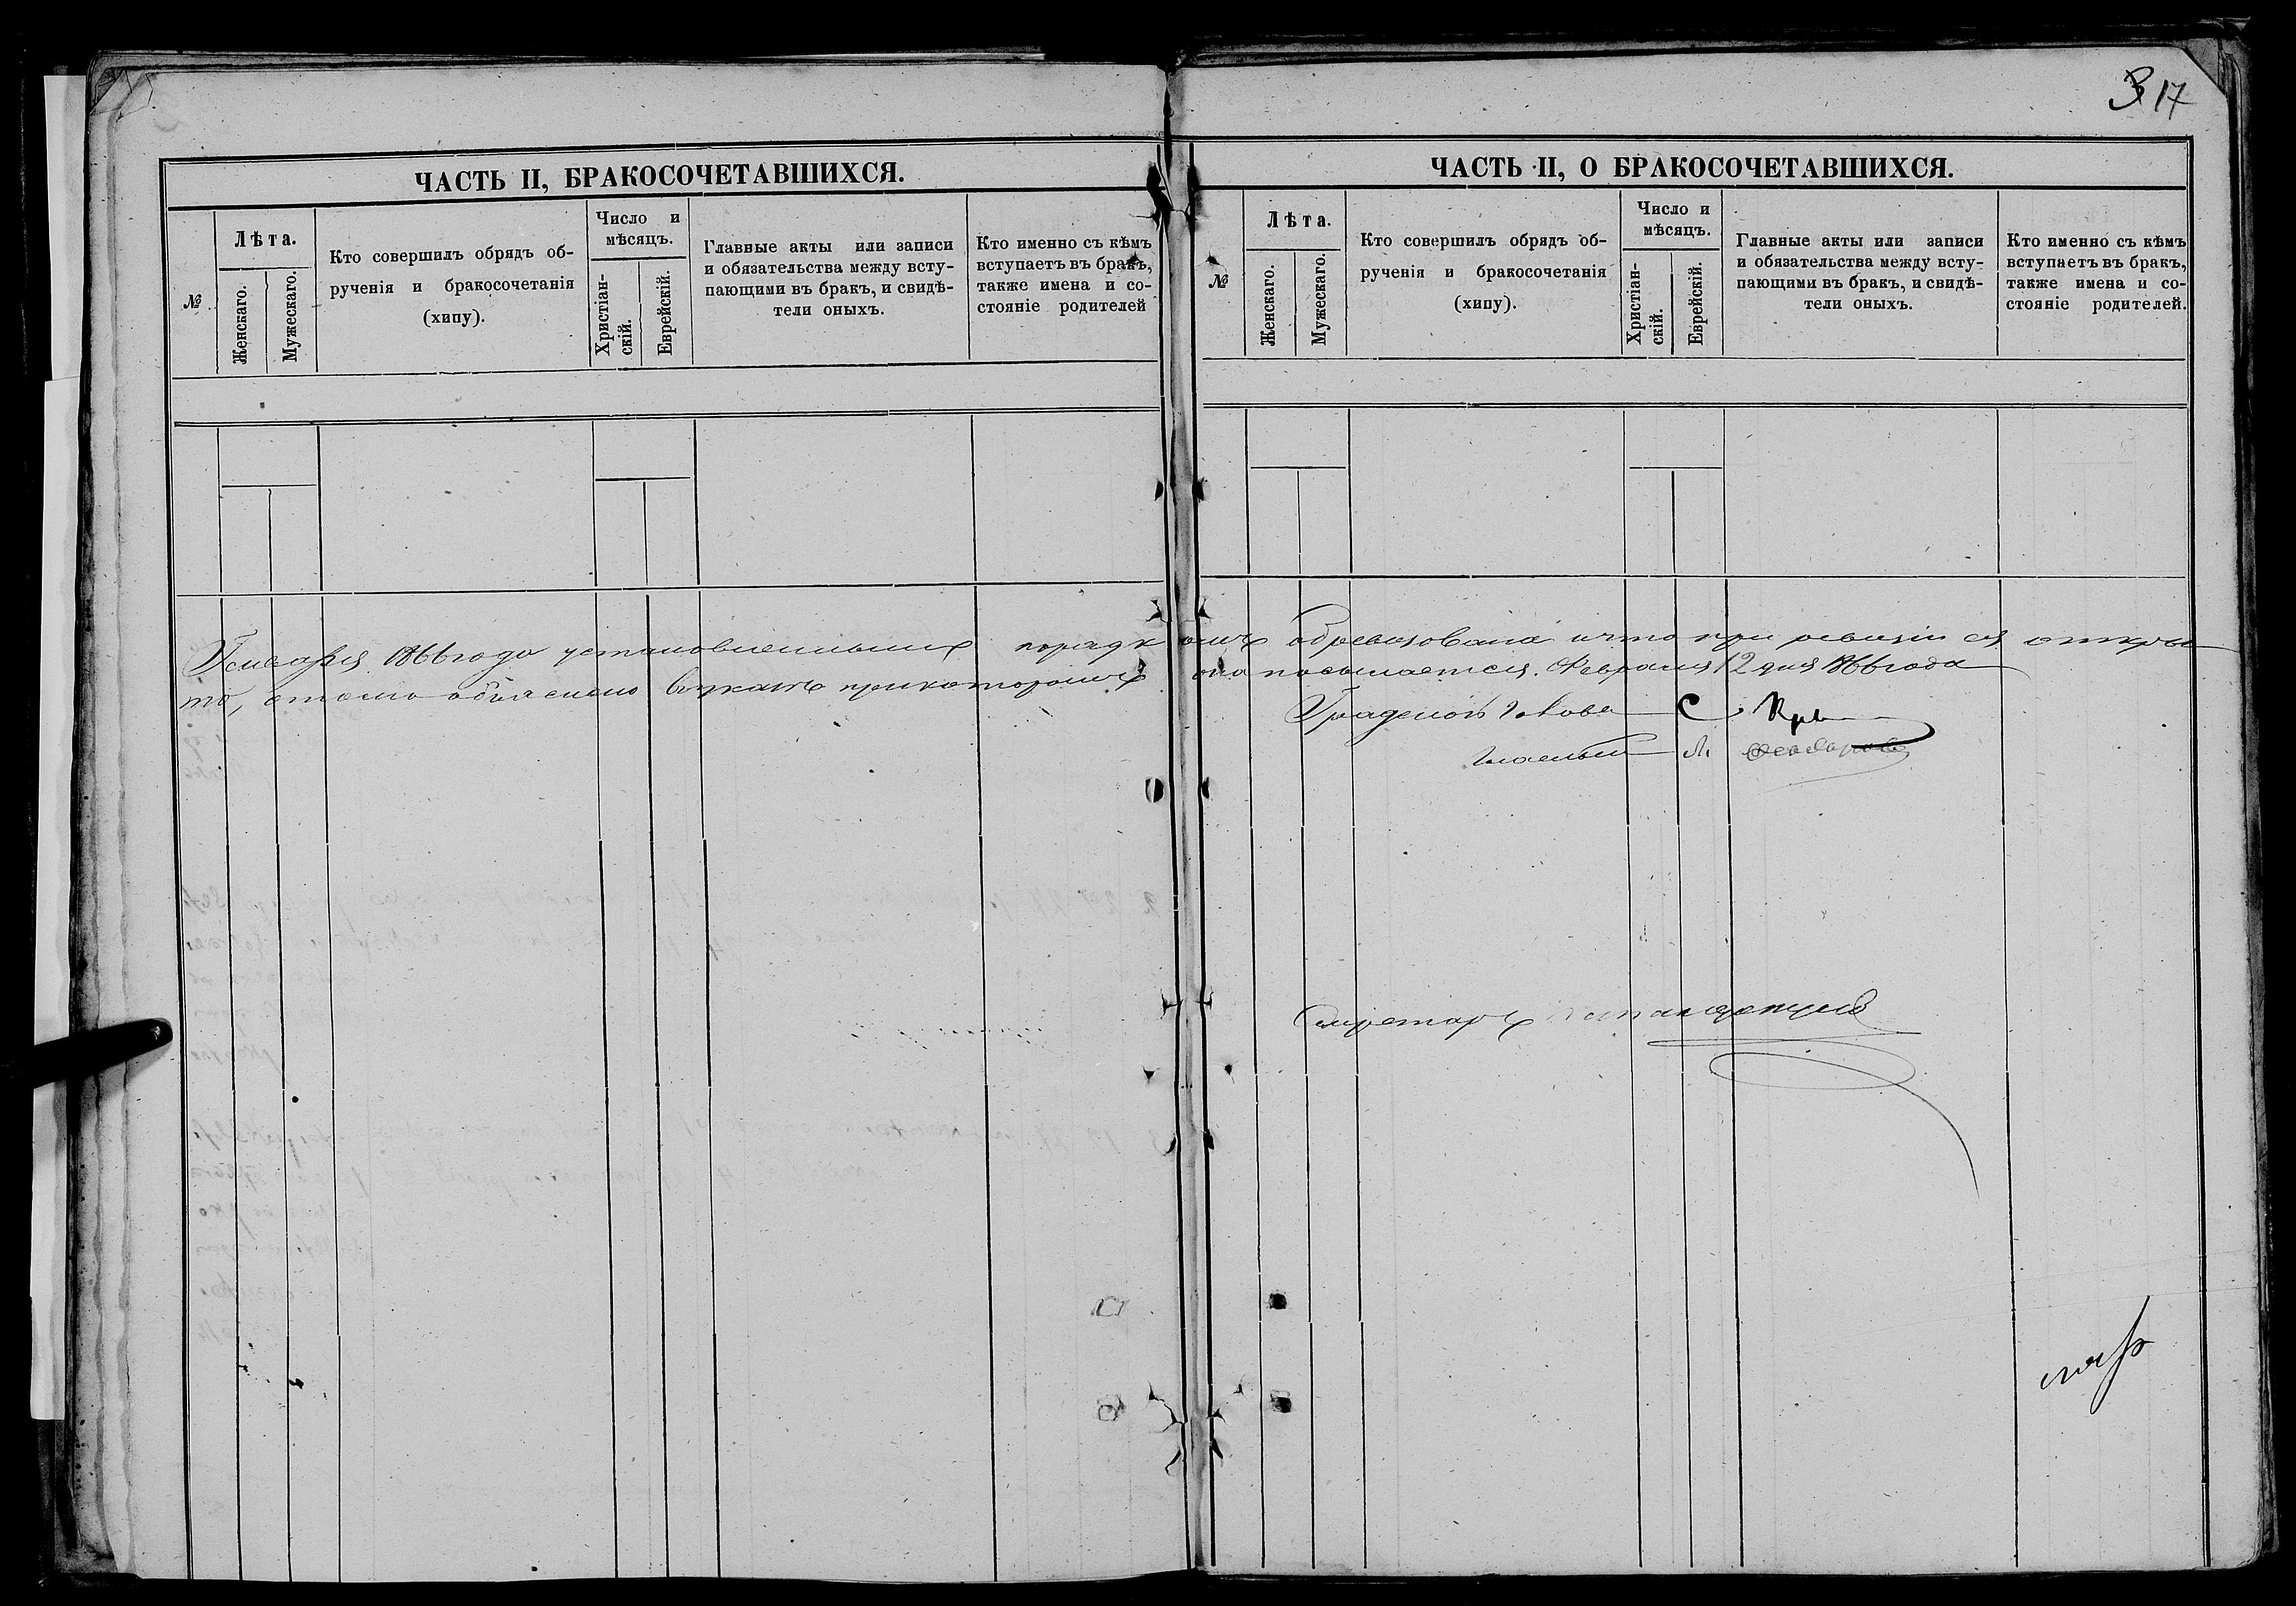 3 17
ЧАСТЬ II, БРАКОСОЧЕТАВШИХСЯ.
№
Лѣта.
Женскаго.
Мужескаго.
Кто совершилъ обрядъ об-
рученія и бракосочетанія
(хипу).
Число и
мѣсяцъ.
Христіан-
скій.
Еврейскій.
Главные акты или записи
и обязательства между всту-
пающими въ бракъ, и свидѣ-
тели оныхъ.
Кто именно съ кѣмъ
вступаетъ въ бракъ,
также имена и со-
стояніе родителей
ЧАСТЬ II, О БРАКОСОЧЕТАВШИХСЯ.
№
Лѣта.
Женскаго.
Мужескаго.
Кто совершилъ обрядъ об-
рученія и бракосочетанія
(хипу).
Число и
мѣсяцъ.
Христіан-
скій.
Еврейскій.
Главные акты или записи
и обязательства между всту-
пающими въ бракъ, и свидѣ-
тели оныхъ.
Кто именно съ кѣмъ
вступаетъ въ бракъ,
также имена и со-
стояніе родителей.
Генваря 1866 года установленнымъ порядкомъ обревизована и что при ревизіи ея откры-
то, о томъ объяснено въ указѣ при которомъ она посылается. Февраля 12 дня 1866 года
Градской Голова С.
Гласный
Секретарь